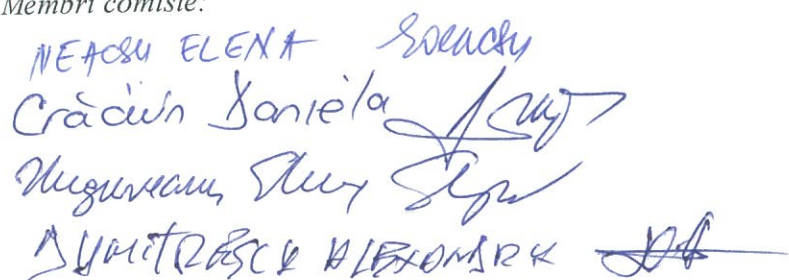 Membri comisie:
NEACSU ELENA
Crăciun Daniela
Ungureanu
DUMITRESCU ALEXANDRA